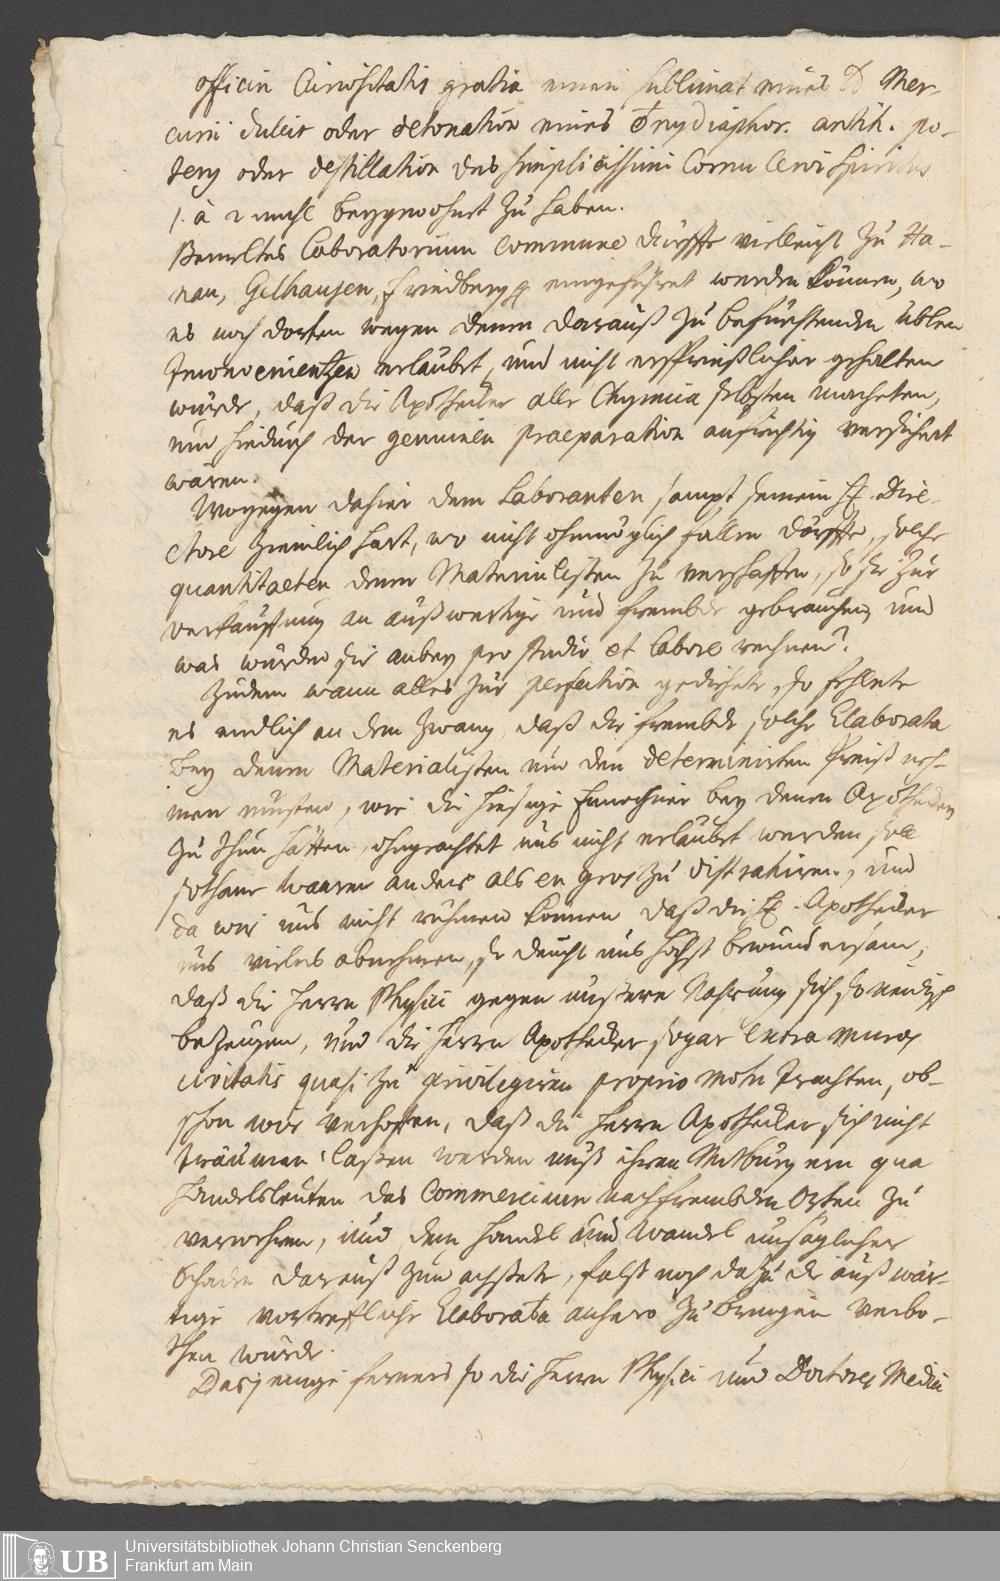 officin Curiositatis gratia einen sublimat eines Mer-
curii dulcis oder detonation eines diaphor. antih. po-
tery oder destillation des simplicissimi Cornu Cervi Spiritus
1. à 2 mahl beygewohnet zu haben.
Bemeltes Laboratorium commune dürffte vielleicht zu Ha-
nau, Gelhausen, Friedberg eingeführet werden können, wo
es noch dorten wegen denen darauß zu befürchtenden üblen
Inconvenientzen erlaubet, und nicht erspießlicher gehalten
würde, daß die Apothecker alle Chymica selbsten macheten,
und hiedurch der genuinen praeparation aufrichtig versichert
wären.
Wogegen dahier dem Laboranten sampt seinem H. Dire-
ctore ziemlich hart, wo nicht ohnmöglich fallen dörffte, solche
quantitaeten denen Materialisten zu verschaffen, so sie zur
verkauffung an außwertige und frembde gebrauchen, und
was würden sie anbey pro studio et labore rechnen?
Zudem wann alles zur perfection gediehete, so fehlete
es endlich an dem Zwang, daß die frembde solche Elaborata
bey denen Materialisten um den determinirten Preiß neh-
men müsten, wie die hiesige Einwohner bey denen Apothecken
zu thun hätten, ohngeachtet uns nicht erlaubet werden soll
sothane Waaren anders als en gros zu distrahiren, und
da wir uns nicht rühmen können daß die H. Apothecker
uns vieles abnehmen, so deucht uns höchst bewundersam,
daß die Herrn Physici gegen unsere Nahrung sich so neidisch
bezeugen, und die Herrn Apothecker sogar extra muros
civitatis quasi zu privilegiren proprio motu trachten, ob-
schon wir verhoffen, daß die Herrn Apothecker sich nicht
träumen laßen werden auß ihren Mitburgern qua
Handelsleuten das Commercium nach frembden Orten zu
verwehren, und dem Handel und Wandel unsäglicher
Schade darauß zuwachßete, falß noch dazu die außwär-
tige vortreffliche Elaborata anhero zu bringen verbo-
then würde.
Dasjenige ferners so die Herrn Physici und Doctores Medici
UB
Universitätsbibliothek Johann Christian Senckenberg
Frankfurt am Main